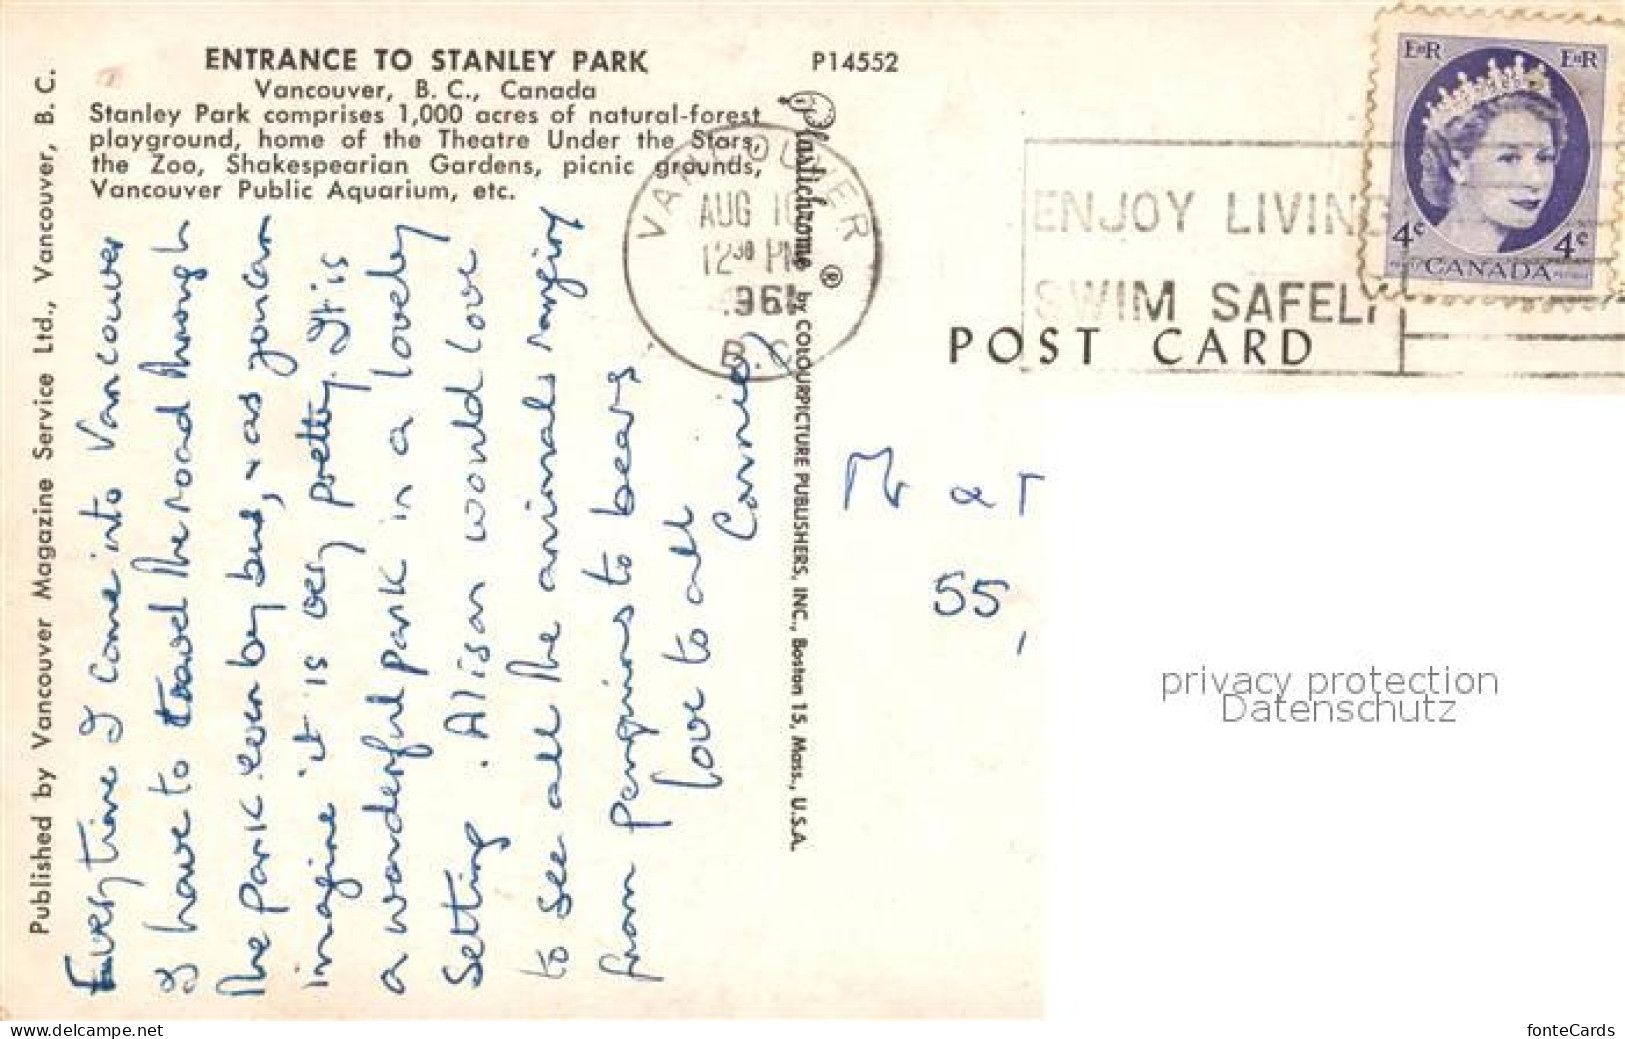 ENTRANCE TO STANLEY PARK
Vancouver, B. C., Canada
Stanley Park comprises 1,000 acres of natural-forest
playground, home of the Theatre Under the Stars,
the Zoo, Shakespearian Gardens, picnic grounds,
Vancouver Public Aquarium, etc.
P14552
Published by Vancouver Magazine Service Ltd., Vancouver, B. C.
Every time I come into Vancouver
I have to travel the road through
the park even by bus, & as you can
imagine it is very pretty. It is
a wonderful park in a lovely
setting. Alison would love
to see all the animals ranging
from penguins to bears
love to all
Connie
Plastichrome ® by COLOURPICTURE PUBLISHERS, INC., Boston 15, Mass., U.S.A.
VANCOUVER
AUG
12 30 PM
B.C.
ENJOY LIVING
SWIM SAFELY
EIIR EIIR
4c 4c
CANADA
POST CARD
55,
privacy protection
Datenschutz
www.delcampe.net
fonteCards